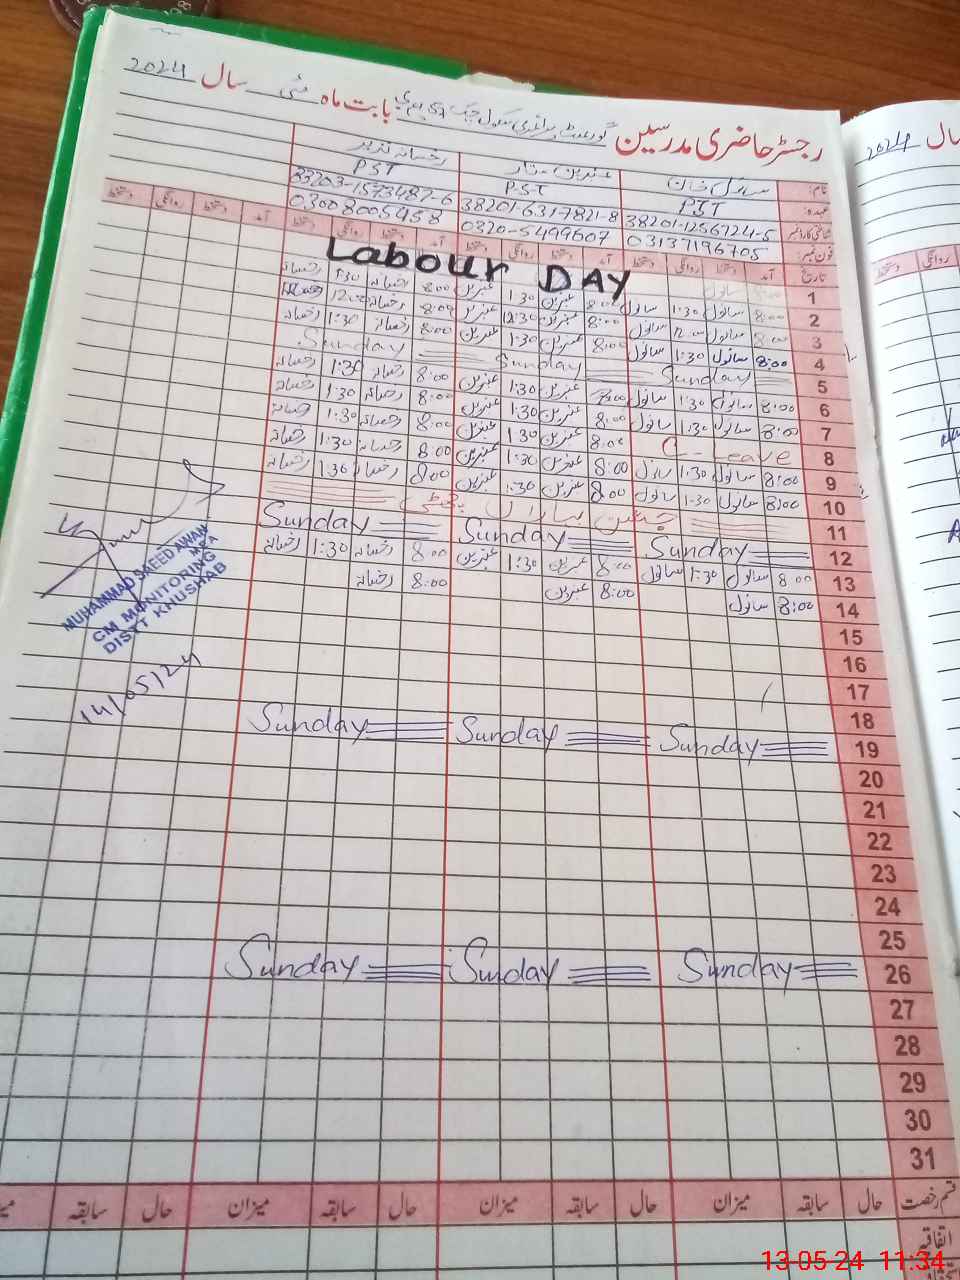 رجسٹر حاضری مدرسین گورنمنٹ پرائمری سکول چک بابت ماہ مئی سال 2024
نام:
عہدہ: PST PST PST
شناختی کارڈ نمبر 38201-1256724-5 38201-6317821-8 33203-1573482-6
فون نمبر: 03137196705 0320-5499607 03008005458
تاریخ آمد دستخط روانگی دستخط آمد دستخط روانگی دستخط آمد دستخط روانگی دستخط آمد دستخط روانگی دستخط
Labour DAY
1
2 8:00 سانول 1:30 سانول 8:00 عنبرین 1:30 عنبرین 8:00 رخسانہ 1:30 رخسانہ
3 8:00 سانول 12:00 سانول 8:00 عنبرین 12:30 عنبرین 8:00 رخسانہ 12:00 رخسانہ
4 8:00 سانول 1:30 سانول 8:00 عنبرین 1:30 عنبرین 8:00 رخسانہ 1:30 رخسانہ
5 Sunday Sunday Sunday
6 8:00 سانول 1:30 سانول 8:00 عنبرین 1:30 عنبرین 8:00 رخسانہ 1:30 رخسانہ
7 8:00 سانول 1:30 سانول 8:00 عنبرین 1:30 عنبرین 8:00 رخسانہ 1:30 رخسانہ
8 C-Leave 8:00 عنبرین 1:30 عنبرین 8:00 رخسانہ 1:30 رخسانہ
9 8:00 سانول 1:30 سانول 8:00 عنبرین 1:30 عنبرین 8:00 رخسانہ 1:30 رخسانہ
10 8:00 سانول 1:30 سانول 8:00 عنبرین 1:30 عنبرین 8:00 رخسانہ 1:30 رخسانہ
11 جشن بہاراں چھٹی
12 Sunday Sunday Sunday
13 8:00 سانول 1:30 سانول 8:00 عنبرین 1:30 عنبرین 8:00 رخسانہ 1:30 رخسانہ
14 8:00 سانول 8:00 عنبرین 8:00 رخسانہ
15
16
17
18
19 Sunday Sunday Sunday
20
21
22
23
24
25
26 Sunday Sunday Sunday
27
28
29
30
31
قسم رخصت حال سابقہ میزان حال سابقہ میزان حال سابقہ میزان حال سابقہ
اتفاقیہ
MUHAMMAD SAEED AWAN
MEA
CM MONITORING
DISTT KHUSHAB
14/05/24
سال 2024
روانگی دستخط
13-05-24 11:34